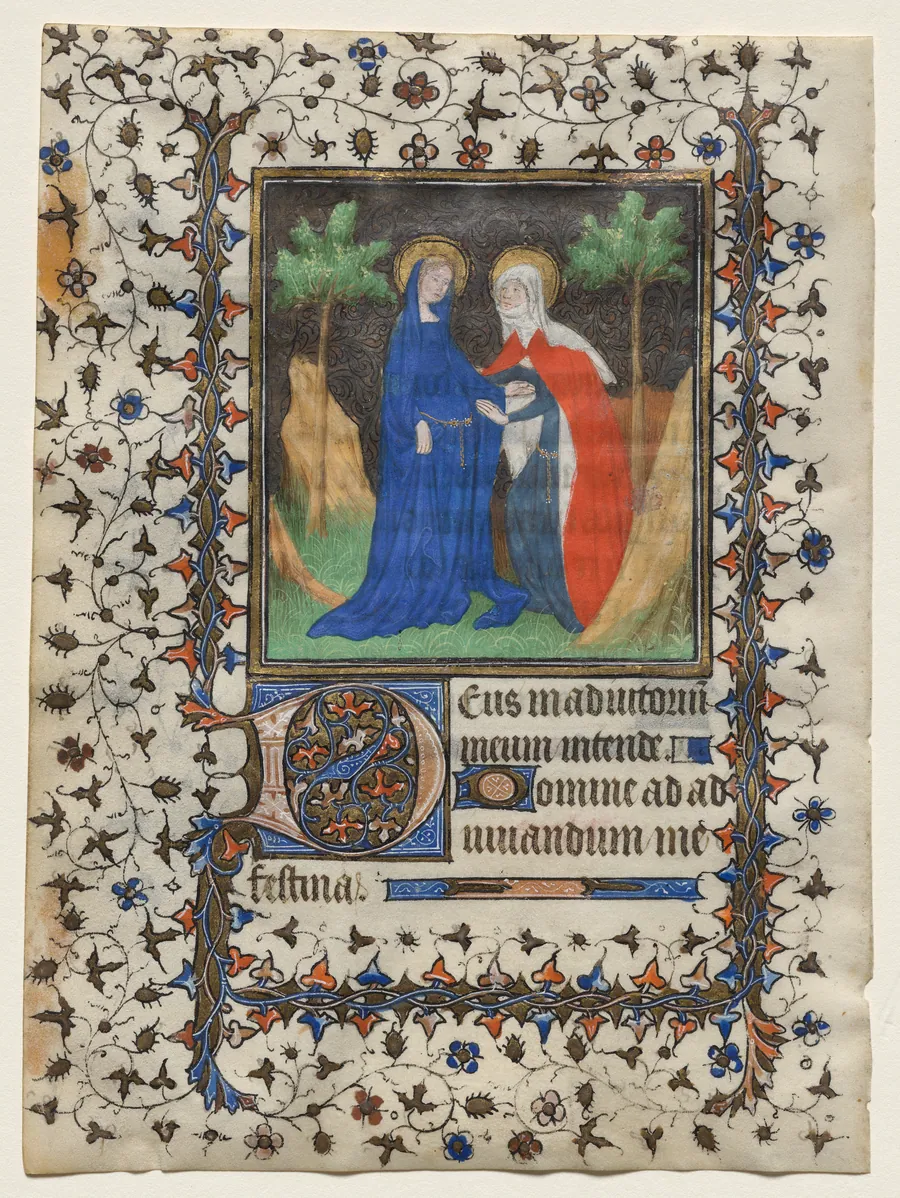 Deus in adiutoriū
meum intende.
Domine ad ad
iuuandum me
festina.